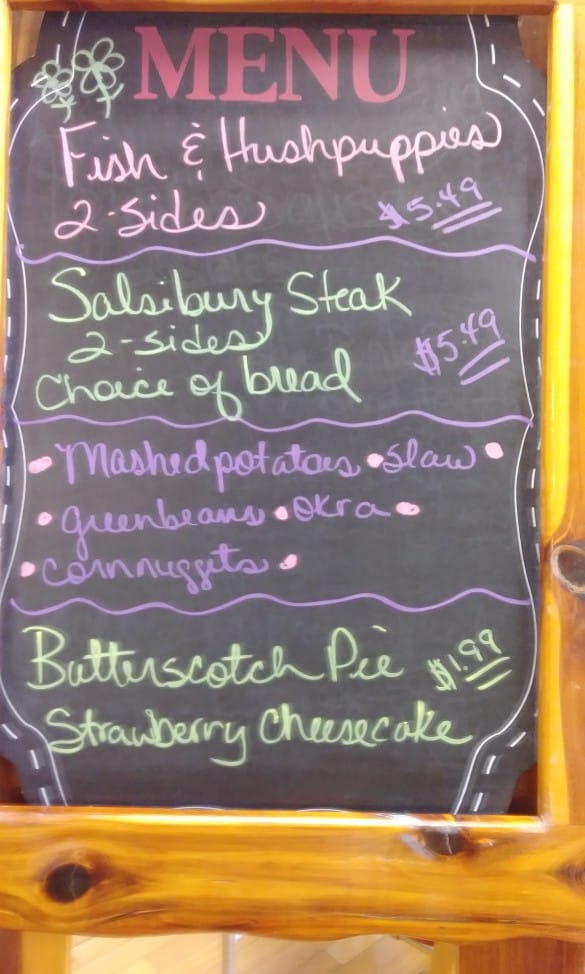 MENU
Fish & Hushpuppies
2-sides $5.49
Salsibury Steak
2-sides
Choice of bread $5.49
• Mashed potatoes • slaw •
• greenbeans • okra •
• cornnuggets •
Butterscotch Pie $1.99
Strawberry Cheesecake